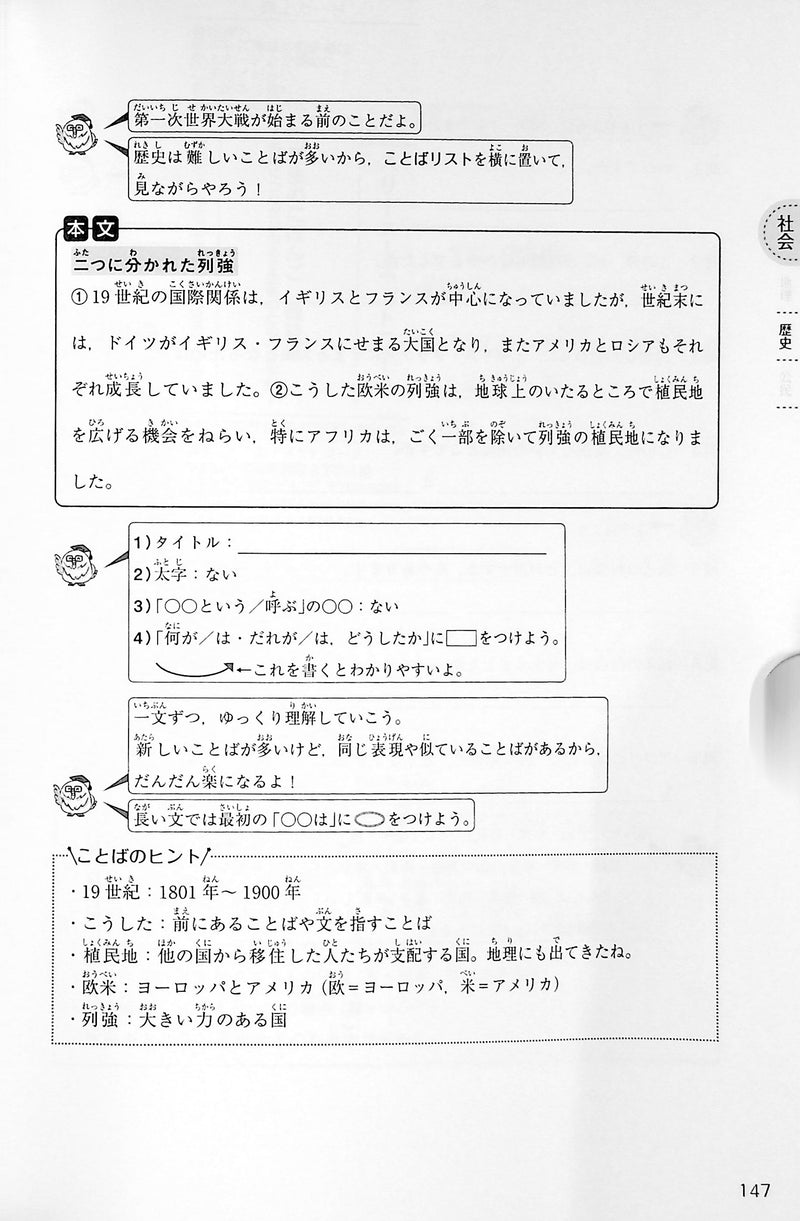 第一次世界大戦が始まる前のことだよ。
歴史は難しいことばが多いから，ことばリストを横に置いて，
見ながらやろう！
本文
二つに分かれた列強
①19世紀の国際関係は，イギリスとフランスが中心になっていましたが，世紀末に
は，ドイツがイギリス・フランスにせまる大国となり，またアメリカとロシアもそれ
ぞれ成長していました。②こうした欧米の列強は，地球上のいたるところで植民地
を広げる機会をねらい，特にアフリカは，ごく一部を除いて列強の植民地になりま
した。
社会
地理
歴史
公民
1)タイトル：
2)太字：ない
3)「○○という／呼ぶ」の○○：ない
4)「何が／は・だれが／は，どうしたか」に□をつけよう。
←これを書くとわかりやすいよ。
一文ずつ，ゆっくり理解していこう。
新しいことばが多いけど，同じ表現や似ていることばがあるから，
だんだん楽になるよ！
長い文では最初の「○○は」に○をつけよう。
ことばのヒント
・19世紀：1801年～1900年
・こうした：前にあることばや文を指すことば
・植民地：他の国から移住した人たちが支配する国。地理にも出てきたね。
・欧米：ヨーロッパとアメリカ(欧＝ヨーロッパ，米＝アメリカ)
・列強：大きい力のある国
147